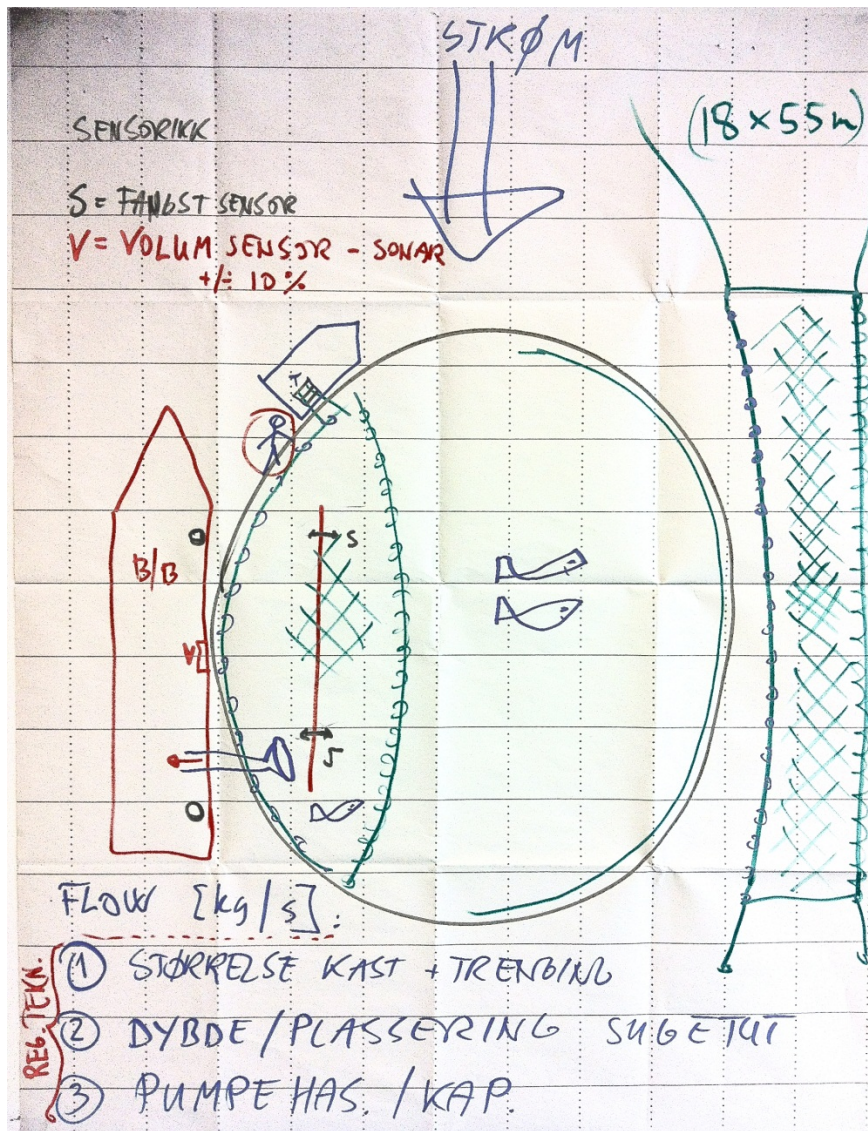 STRØM
(18 x 55m)
SENSORIKK
S = FANGST SENSOR
V = VOLUM SENSOR - SONAR
+/- 10%
S
B/B
V
FLOW [kg/s].
REG. TEKN.
① STØRRELSE KAST + TRENGING
② DYBDE/PLASSERING SUGETUT
③ PUMPE HAS. / KAP.